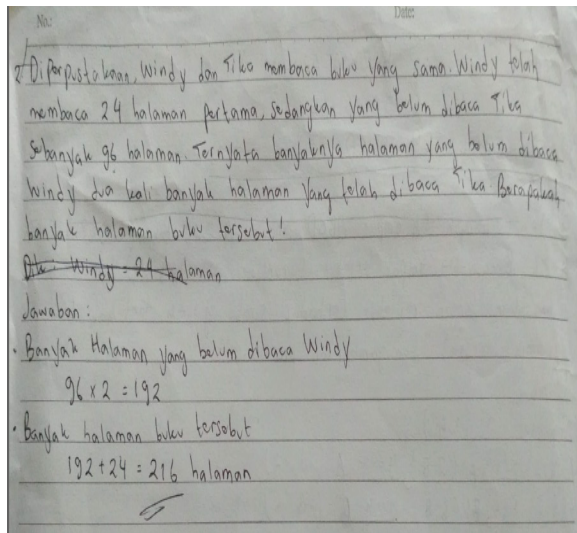 No.: Date:
2. Diperpustakaan, Windy dan Tika membaca buku yang sama. Windy telah
membaca 24 halaman pertama, sedangkan yang belum dibaca Tika
sebanyak 96 halaman. Ternyata banyaknya halaman yang belum dibaca
windy dua kali banyak halaman yang telah dibaca Tika Berapakah
banyak halaman buku tersebut!
Dik: Windy = 24 halaman
Jawaban:
• Banyak Halaman yang belum dibaca Windy
96 x 2 = 192
• Banyak halaman buku tersebut
192 + 24 = 216 halaman